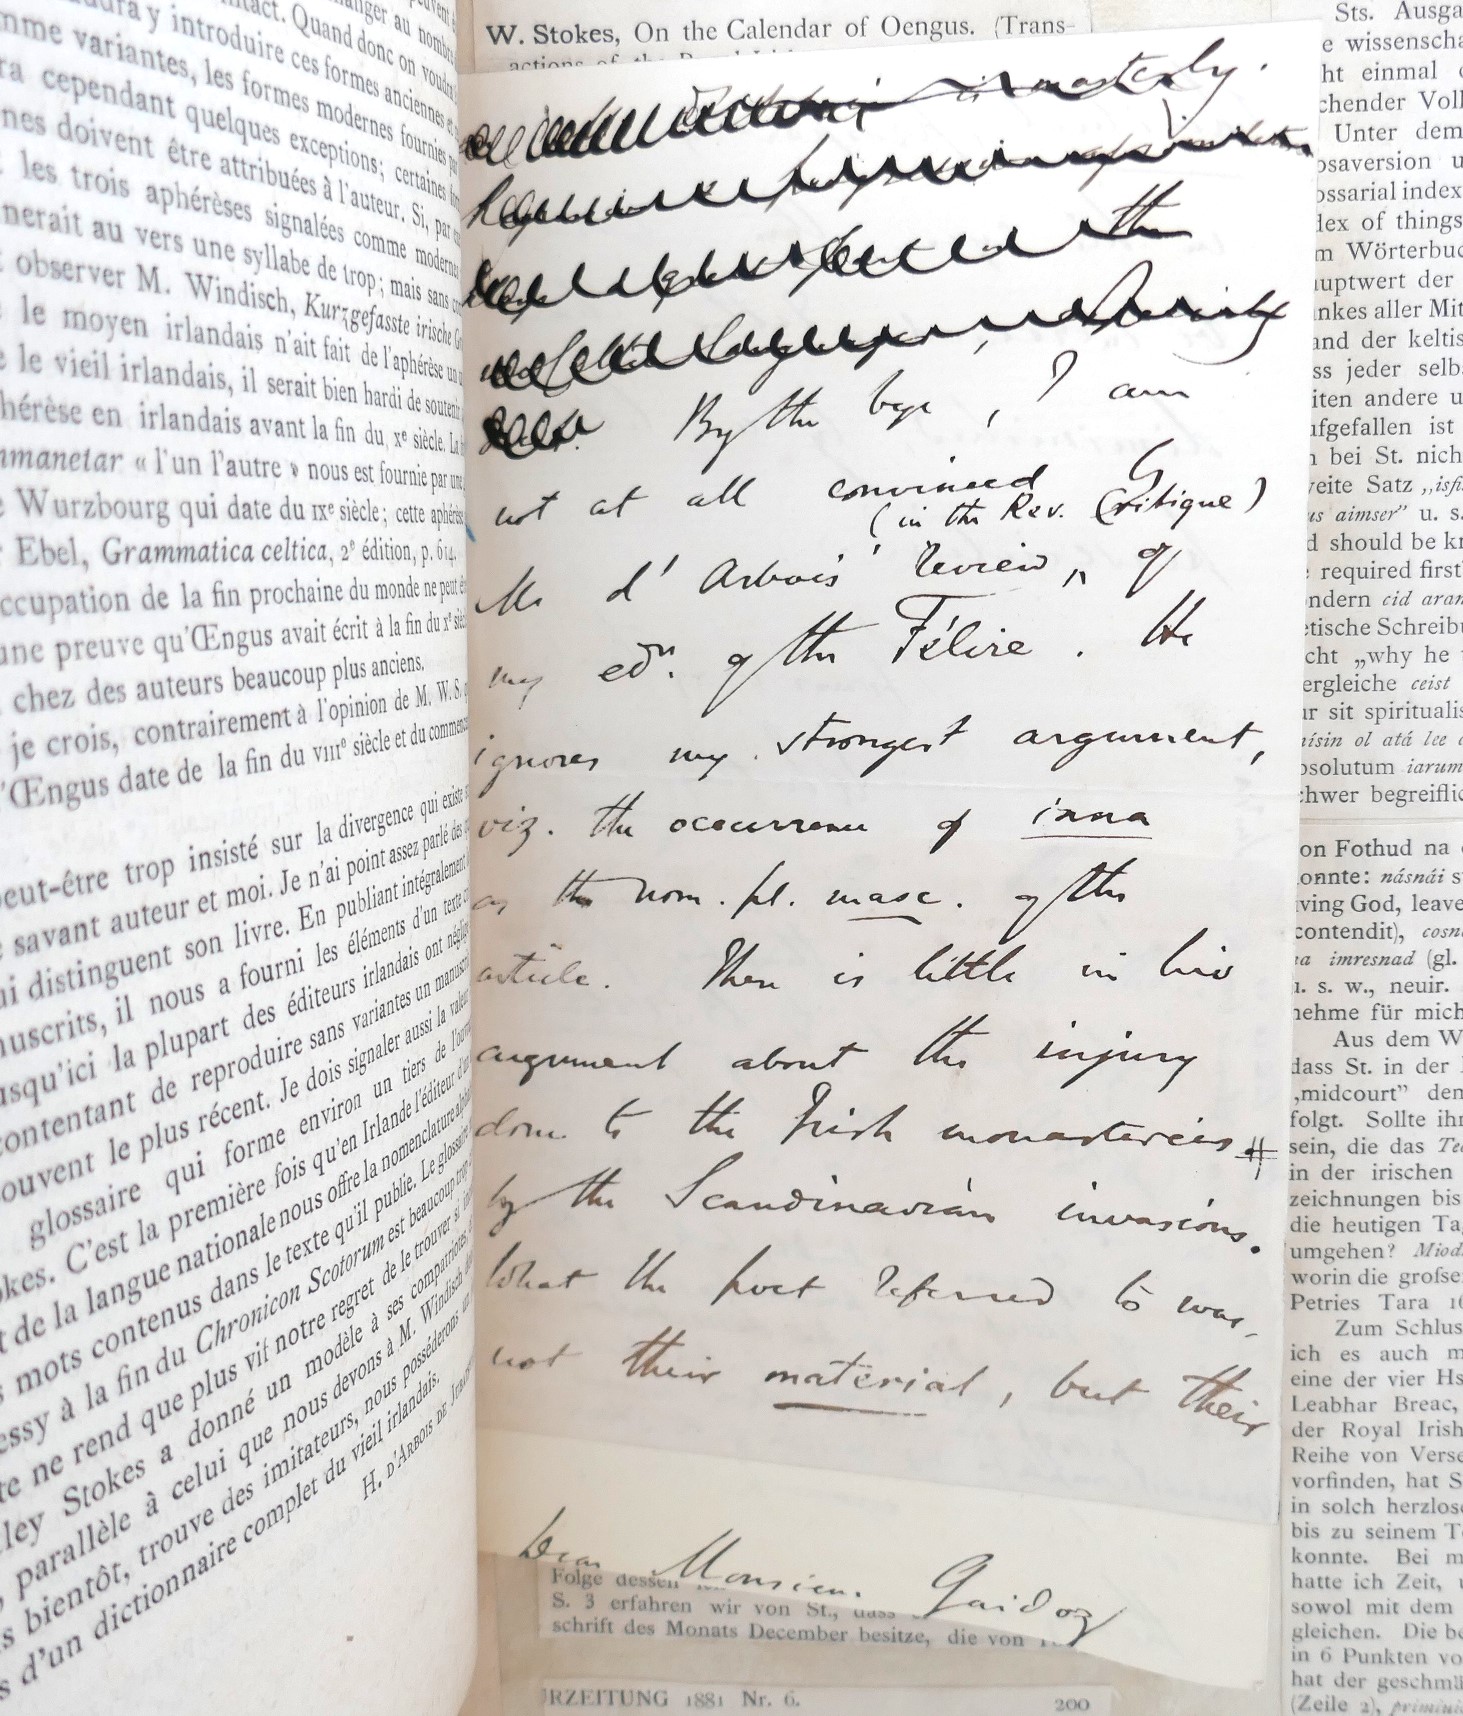 anger au nombre
intact. Quand donc on voudra
y introduire ces formes anciennes et
mme variantes, les formes modernes fournies par
ra cependant quelques exceptions; certaines
nes doivent être attribuées à l'auteur. Si, par
les trois aphérèses signalées comme modernes
nerait au vers une syllabe de trop; mais sans
observer M. Windisch, Kurzgefasste irische
le moyen irlandais n'ait fait de l'aphérèse un
le vieil irlandais, il serait bien hardi de soutenir
hérèse en irlandais avant la fin du xe siècle. La
mmanetar « l'un l'autre » nous est fournie par une
Wurzbourg qui date du IXe siècle; cette aphérèse
Ebel, Grammatica celtica, 2e édition, p. 614.
ccupation de la fin prochaine du monde ne peut
une preuve qu'Œngus avait écrit à la fin du xe
chez des auteurs beaucoup plus anciens.
je crois, contrairement à l'opinion de M. W. S.
'Œngus date de la fin du VIIIe siècle et du commence
peut-être trop insisté sur la divergence qui existe
savant auteur et moi. Je n'ai point assez parlé des
ui distinguent son livre. En publiant intégralement
nuscrits, il nous a fourni les éléments d'un texte
usqu'ici la plupart des éditeurs irlandais ont négligé
contentant de reproduire sans variantes un manuscrit
ouvent le plus récent. Je dois signaler aussi la valeur
glossaire qui forme environ un tiers de l'ouv
okes. C'est la première fois qu'en Irlande l'éditeur d'un
t de la langue nationale nous offre la nomenclature
s mots contenus dans le texte qu'il publie. Le glossaire
essy à la fin du Chronicon Scotorum est beaucoup trop
te ne rend que plus vif notre regret de le trouver si
ley Stokes a donné un modèle à ses compatriotes;
parallèle à celui que nous devons à M. Windisch
s bientôt, trouve des imitateurs, nous posséderons
s d'un dictionnaire complet du vieil irlandais.
H. D'ARBOIS DE
W. Stokes, On the Calendar of Oengus. (Trans-
actions of the
is masterly.
the
By the bye, I am
not at all convinced by
(in the Rev. Critique)
M. d'Arbois' review, of
my edn. of the Félire. He
ignores my strongest argument,
viz. the occurrence of inna
as the nom. pl. masc. of the
article. There is little in his
argument about the injury
done to the Irish monasteries
by the Scandinavian invasions.
What the poet referred to was
not their material, but their
Dear Monsieur Gaidoz
Folge dessen
S. 3 erfahren wir von St., dass
schrift des Monats December besitze, die von
URZEITUNG 1881 Nr. 6. 200
Sts. Ausga
e wissenscha
ht einmal
chender Voll
Unter dem
osaversion u
ossarial index
dex of things
m Wörterbuc
auptwert der
ankes aller Mit
and der keltis
ss jeder selb
iten andere u
ufgefallen ist
bei St. nich
weite Satz „isfi
us aimser" u. s.
d should be kn
required first
ndern cid aran
etische Schreibu
cht „why he
ergleiche ceist
ur sit spiritualis
nísin ol atá lee
osolutum iarum
chwer begreiflic
on Fothud na
onnte: násnái s
iving God, leave
contendit), cosn
na imresnad (gl.
u. s. w., neuir.
nehme für mich
Aus dem W
dass St. in der
„midcourt" dem
folgt. Sollte ihm
sein, die das Te
in der irischen
zeichnungen bis
die heutigen Ta
umgehen? Miod
worin die grofse
Petries Tara 16
Zum Schlus
ich es auch m
eine der vier Hs
Leabhar Breac,
der Royal Irish
Reihe von Verse
vorfinden, hat S
in solch herzlose
bis zu seinem T
konnte. Bei m
hatte ich Zeit, u
sowol mit dem
gleichen. Die be
in 6 Punkten vo
hat der geschmä
(Zeile 2), primiui